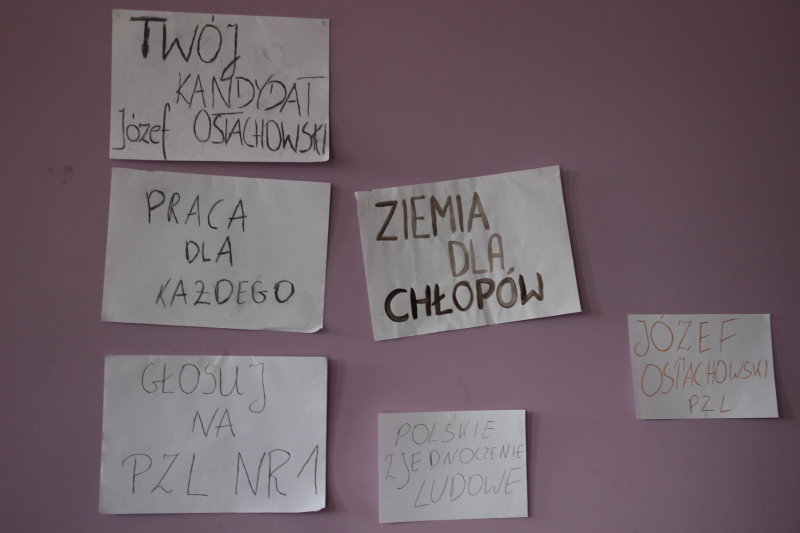 TWÓJ
KANDYDAT
Józef OSTACHOWSKI
PRACA
DLA
KAŻDEGO
ZIEMIA
DLA
CHŁOPÓW
GŁOSUJ
NA
PZL NR 1
POLSKIE
ZJEDNOCZENIE
LUDOWE
JÓZEF
OSTACHOWSKI
PZL